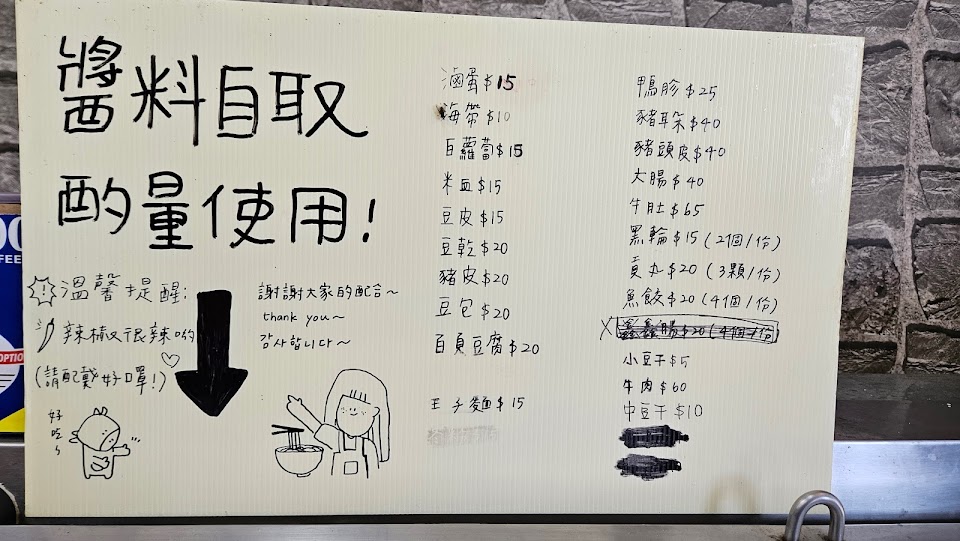 醬料自取
酌量使用!
溫馨提醒:
辣椒很辣喲
(請配戴好口罩!)
好吃ㄅ
謝謝大家的配合~
thank you~
감사합니다~
滷蛋$15
海帶$10
白蘿蔔$15
米血$15
豆皮$15
豆乾$20
豬皮$20
豆包$20
百頁豆腐$20
王子麵$15
鴨胗$25
豬耳朵$40
豬頭皮$40
大腸$40
牛肚$65
黑輪$15(2個/份)
貢丸$20(3顆/份)
魚餃$20(4個/份)
X 鑫鑫腸$20(4個/份)
小豆干$5
牛肉$60
中豆干$10
FEE
OPTIO